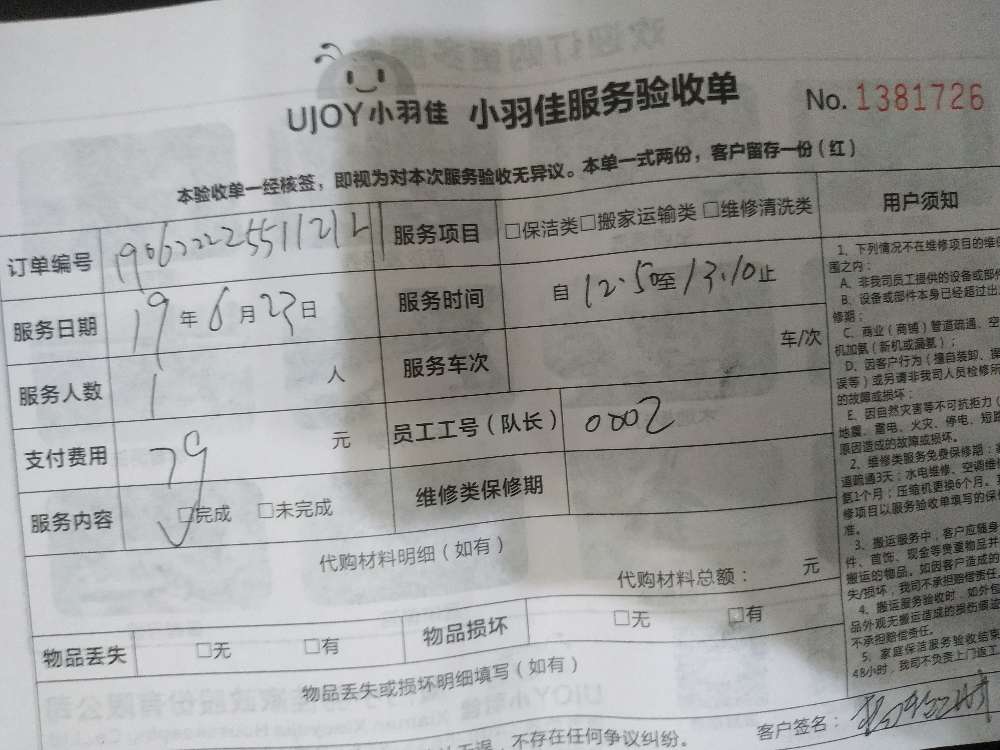 UJOY小羽佳 小羽佳服务验收单 No. 1381726
本验收单一经核签，即视为对本次服务验收无异议。本单一式两份，客户留存一份（红）
订单编号 服务项目 □保洁类□搬家运输类□维修清洗类
服务日期 19年6月23日 服务时间 自12:50至13:10止
服务人数 1人 服务车次 车/次
支付费用 79元 员工工号（队长） 0002
服务内容 □完成 □未完成 维修类保修期
代购材料明细（如有）
代购材料总额： 元
物品丢失 □无 □有 物品损坏 □无 □有
物品丢失或损坏明细填写（如有）
不存在任何争议纠纷。 客户签名：
用户须知
1、下列情况不在维修项目的维保
围之内：
A、非我司员工提供的设备或部件
B、设备或部件本身已经超过出
修期；
C、商业（商铺）管道疏通、空
机加氨（新机或漏氨）；
D、因客户行为（擅自装卸、操
误等）或另请非我司人员检修所
的故障或损坏；
E、因自然灾害等不可抗拒力（
地震、雷电、火灾、停电、短路
原因造成的故障或损坏。
2、维修类服务免费保修期：
道疏通3天；水电维修、空调维
氨1个月；压缩机更换6个月。其
修项目以服务验收单填写的保
准。
3、搬运服务中，客户应随身
件、首饰、现金等贵重物品并
搬运的物品。如因客户造成的
失/损坏，我司不承担赔偿责任。
4、搬运服务验收时，如外包
品外观无搬运造成的损伤痕迹
不承担赔偿责任。
5、家庭保洁服务验收结束
48小时，我司不负责上门返工